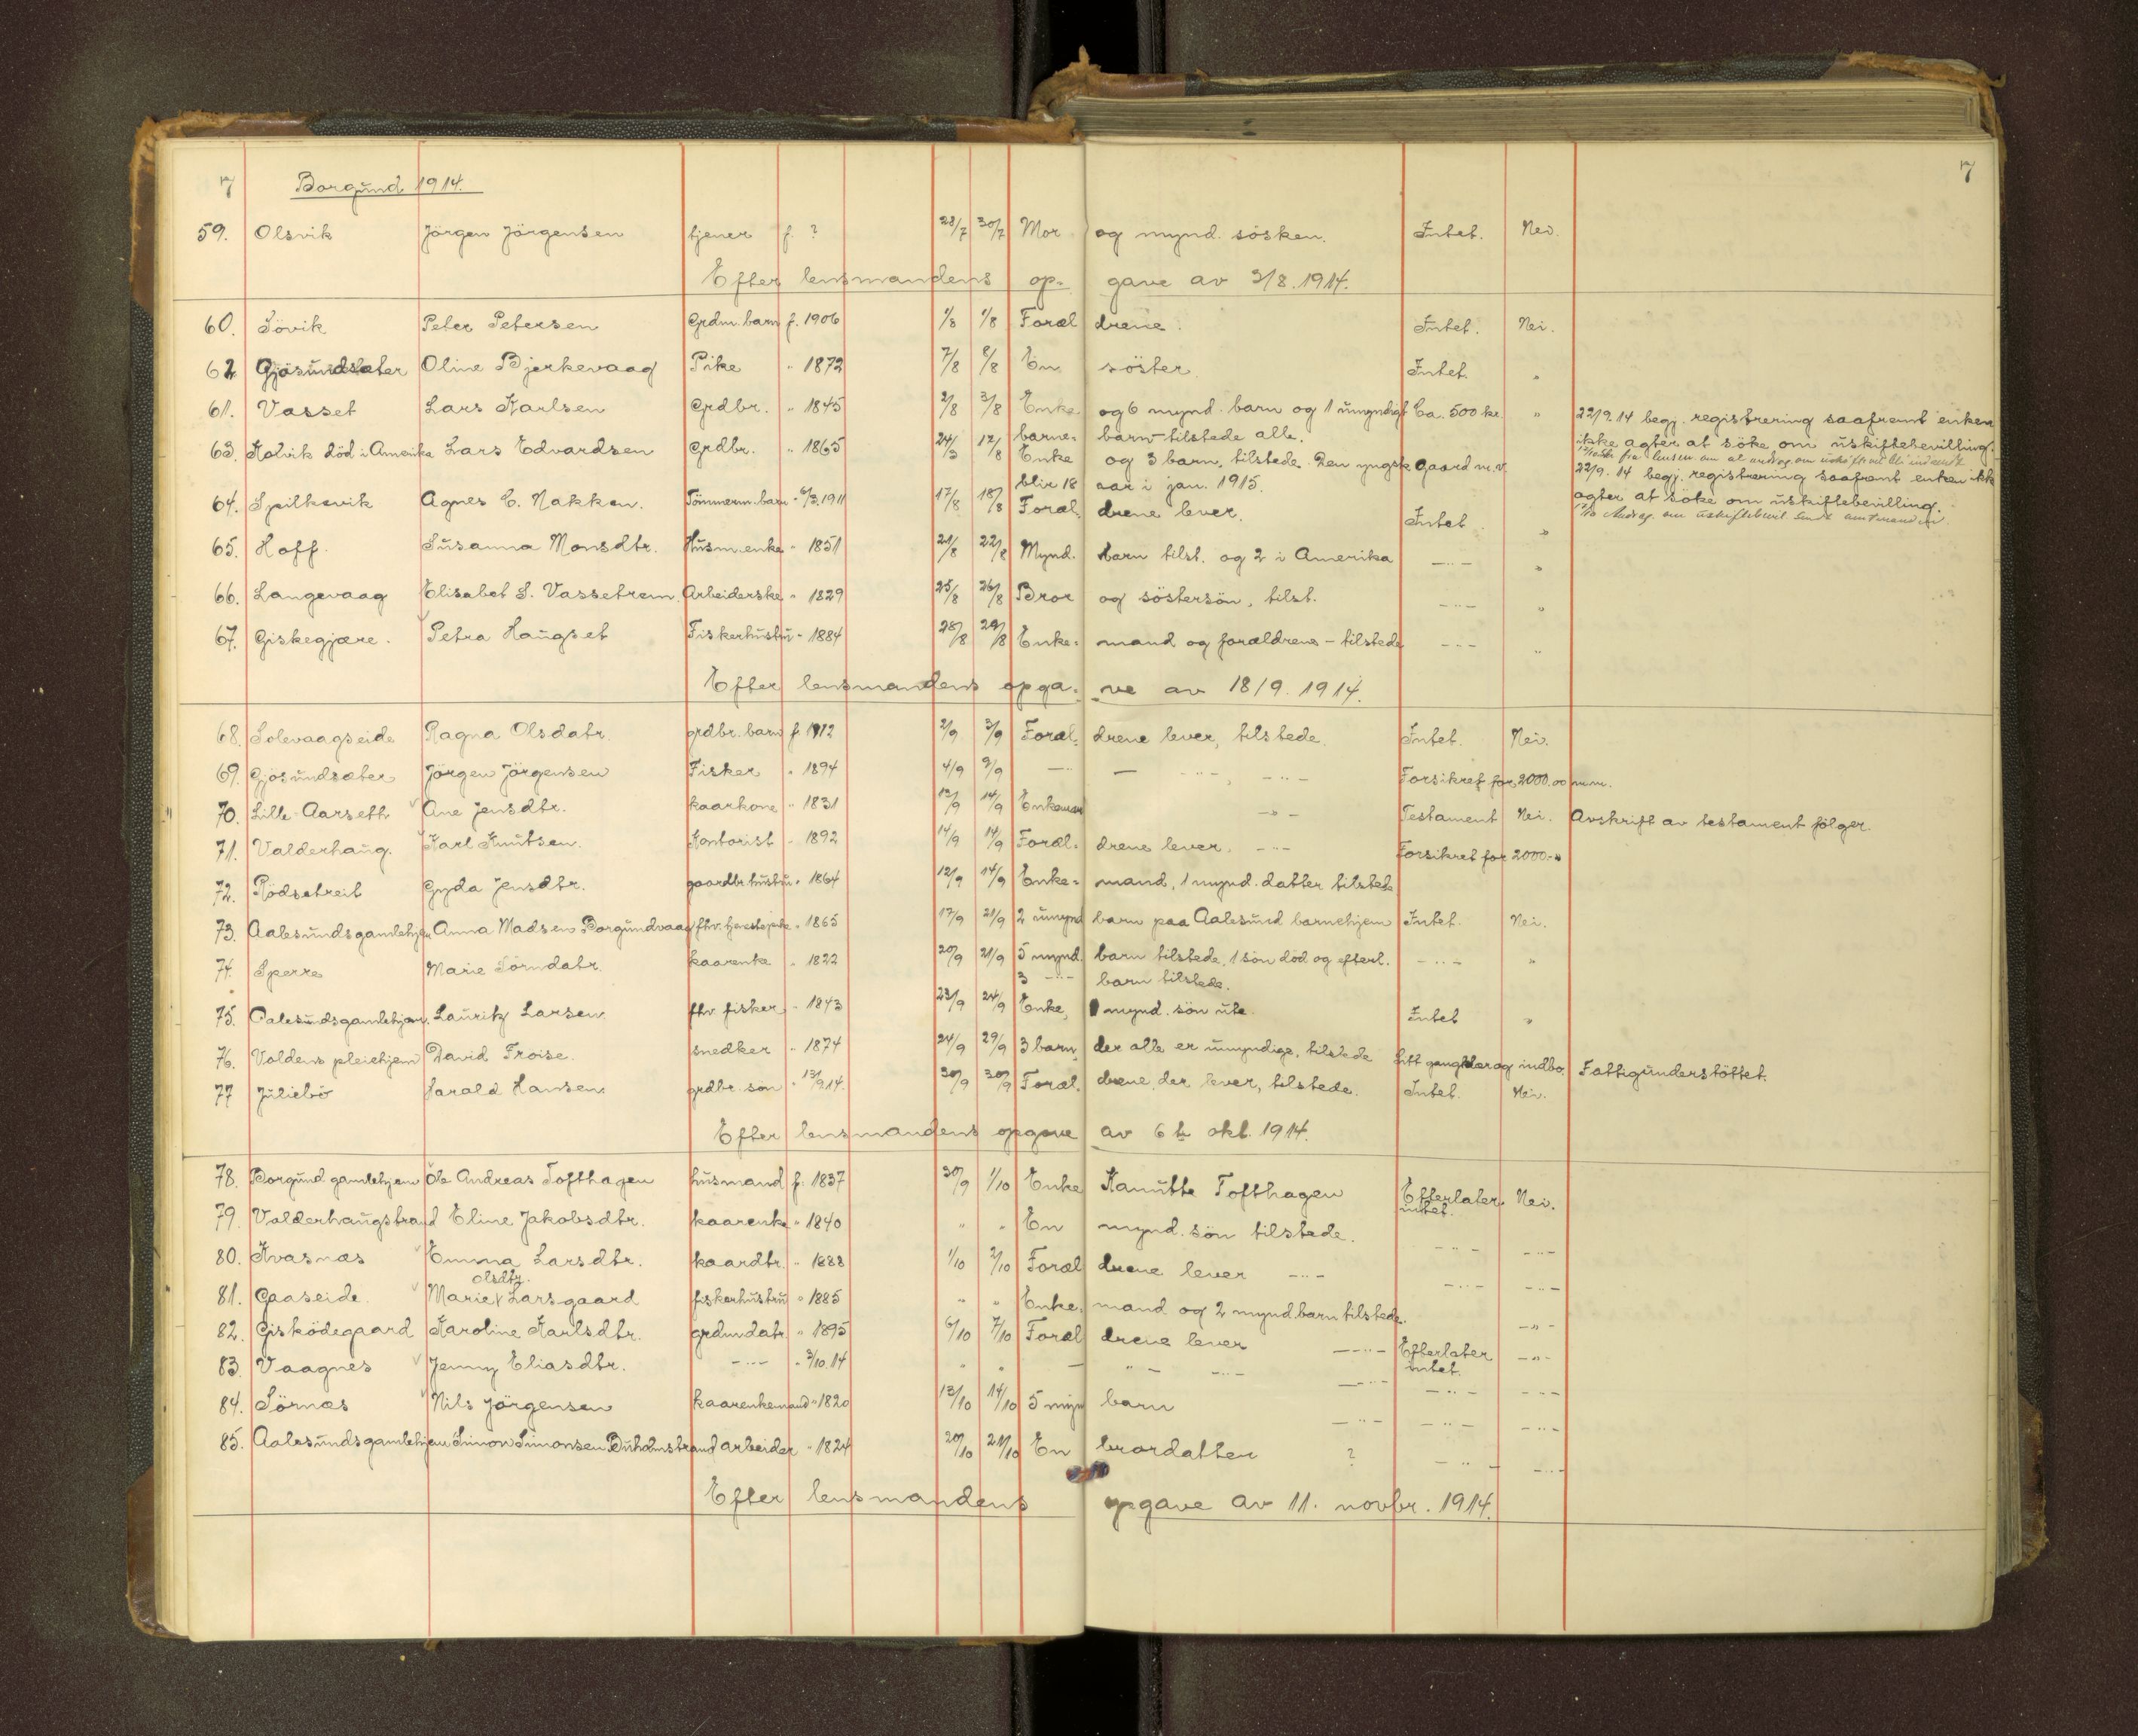 7 Borgund 1914. 7
59. Olsvik Jörgen Jörgensen tjener f. ? 28/7 30/7 Mor og mynd. sösken. Intet. Nei.
Efter lensmandens op- gave av 3/8. 1914.
60. Sövik Peter Petersen Grdm. barn f. 1906 1/8 1/8 Foræl drene. Intet. Nei.
62 Gjösundsæter Oline Bjerkevaag Pike " 1872 7/8 8/8 En söster. Intet. "
61. Vasset Lars Karlsen Grdbr. " 1845 2/8 3/8 Enke og 6 mynd. barn og 1 umyndigt Ca. 500 kr. " 22/9.14 begj. registrering saafremt enken
barne- barn - tilstede alle. ikke agter at söke om uskiftebevilling.
63. Kalvik död i Amerika Lars Edvardsen Grdbr. " 1865 24/3 12/8 Enke og 3 barn, tilstede. Den yngste Gaard m.v.
22/9. 14 begj. registrering saafremt enken ikk
blir 18 aar i jan. 1915.
64. Spilkevik Agnes C. Nakken. Tömmerm. barn " 6/3.1911 17/8 18/8 Foræl- drene lever. Intet " agter at söke om uskiftebevilling.
17/10 Andrag. om uskiftebevil. sendt amtmanden.
65. Hoff. Susanna Monsdtr. Husm. enke " 1851 21/8 22/8 Mynd. barn tilst. og 2 i Amerika -"- "
66. Langevaag Elisabet S. Vassetrem. Arbeiderske " 1829 25/8 26/8 Bror og söstersön, tilst. -"- "
67. Giskegjære. Petra Haugset Fiskerhustru " 1884 28/8 29/8 Enke- mand og forældrene - tilstede -"- "
Efter lensmandens opga- ve av 18/9. 1914.
68. Solevaagseide Ragna Olsdatr. grdbr. barn f. 1912 2/9 3/9 Foræl- drene lever, tilstede. Intet. Nei.
69. Gjösundsæter Jörgen Jörgensen Fisker " 1894 4/9 9/9 -"- - -"-, -"- Forsikret for 2000.00 m.m.
70. Lille-Aarseth Ane Jensdtr. kaarkone " 1831 13/9 14/9 Enkeman -"- Testament Nei. Avskrift av testament fölger.
71. Valderhaug. Karl Knutsen. Kontorist " 1892 14/9 14/9 Foræl- drene lever, -"- Forsikret for 2000.- "
72. Rödsetreit Gyda Jensdtr. gaardbr. hustru " 1864 12/9 14/9 Enke- mand, 1 mynd. datter tilstede
73. Aalesunds gamlehjem Anna Madsen Borgundvaag fhv. tjenestepike " 1865 17/9 21/9 2 umynd barn paa Aalesund barnehjem Intet. Nei.
74. Sperre Marie Sörndatr. kaarenke " 1822 20/9 21/9 5 mynd. barn tilstede, 1 sön död og efterl. -"- "
3 -"- barn tilstede.
75. Aalesundsgamlehjem. Lauritz Larsen. fhv. fisker " 1843 23/9 24/9 Enke, 1 mynd. sön ute. Intet "
76. Voldens pleiehjem David Froise. snedker " 1874 24/9 29/9 3 barn, der alle er umyndige, tilstede Litt gangklær og indbo. Fattigunderstöttet.
77 Juliebö Harald Hansen. grdbr. sön " 13/9 14. 30/9 30/9 Foræl- drene, der lever, tilstede. Intet. Nei.
Efter lensmandens opgave av 6te okt. 1914.
78. Borgund gamlehjem Ole Andreas Tofthagen husmand f. 1837 30/9 1/10 Enke Kanutte Tofthagen Efterlater Nei.
intet.
79. Valderhaugstrand Eline Jakobsdtr. kaarenke " 1840 " " En mynd. sön tilstede. -"- -"-
80. Kvasnæs Emma Larsdtr. kaardtr. " 1888 1/10 2/10 Foræl drene lever -"- -"- -"-
olsdtr.
81. Gaaseide. Marie Larsgaard fiskerhustru " 1885 " " Enke- mand og 2 mynd barn tilstede. -"-
82. Gisködegaard Karoline Karlsdtr. grdm datr. " 1895 6/10 7/10 Foræl drene lever -"- Efterlater -"-
intet.
83. Vaagnes Jenny Eliasdtr. -"- " 3/10.14 " " - " - -"- -"- -"- -"-
84. Sörnæs Nils Jörgensen kaarenkemand " 1820 13/10 14/10 5 myn barn -"- -"- -"-
85. Aalesundsgamlehjem Simon Simonsen Buholmstrand arbeider " 1824 20/10 21/10 En brordatter ? -"- -"-
Efter lensmandens opgave av 11. novbr. 1914.